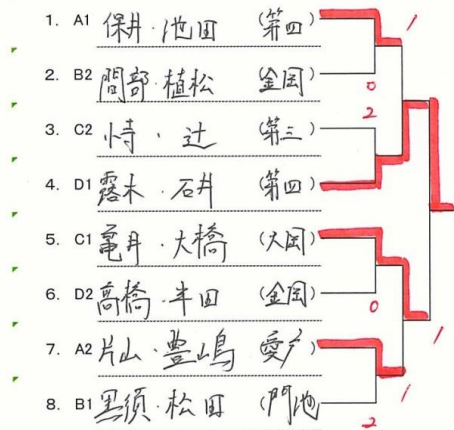 1. A1 保井・池田 (第四)
2. B2 間部・植松 (金岡)
3. C2 恃・辻 (第三)
4. D1 露木・石井 (第四)
5. C1 亀井・大橋 (大岡)
6. D2 高橋・半田 (金岡)
7. A2 片山・豊嶋 愛户)
8. B1 黒須・松田 (門池
1
0
2
0
1
1
2